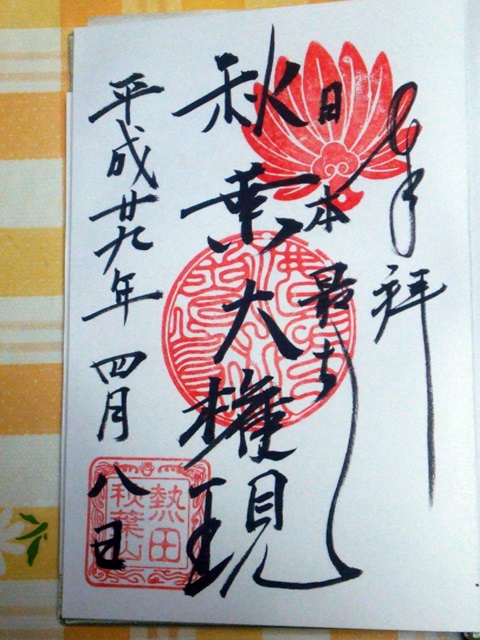 奉拝
日本最古
秋葉大権現
平成廿九年四月八日
熱田
秋葉山